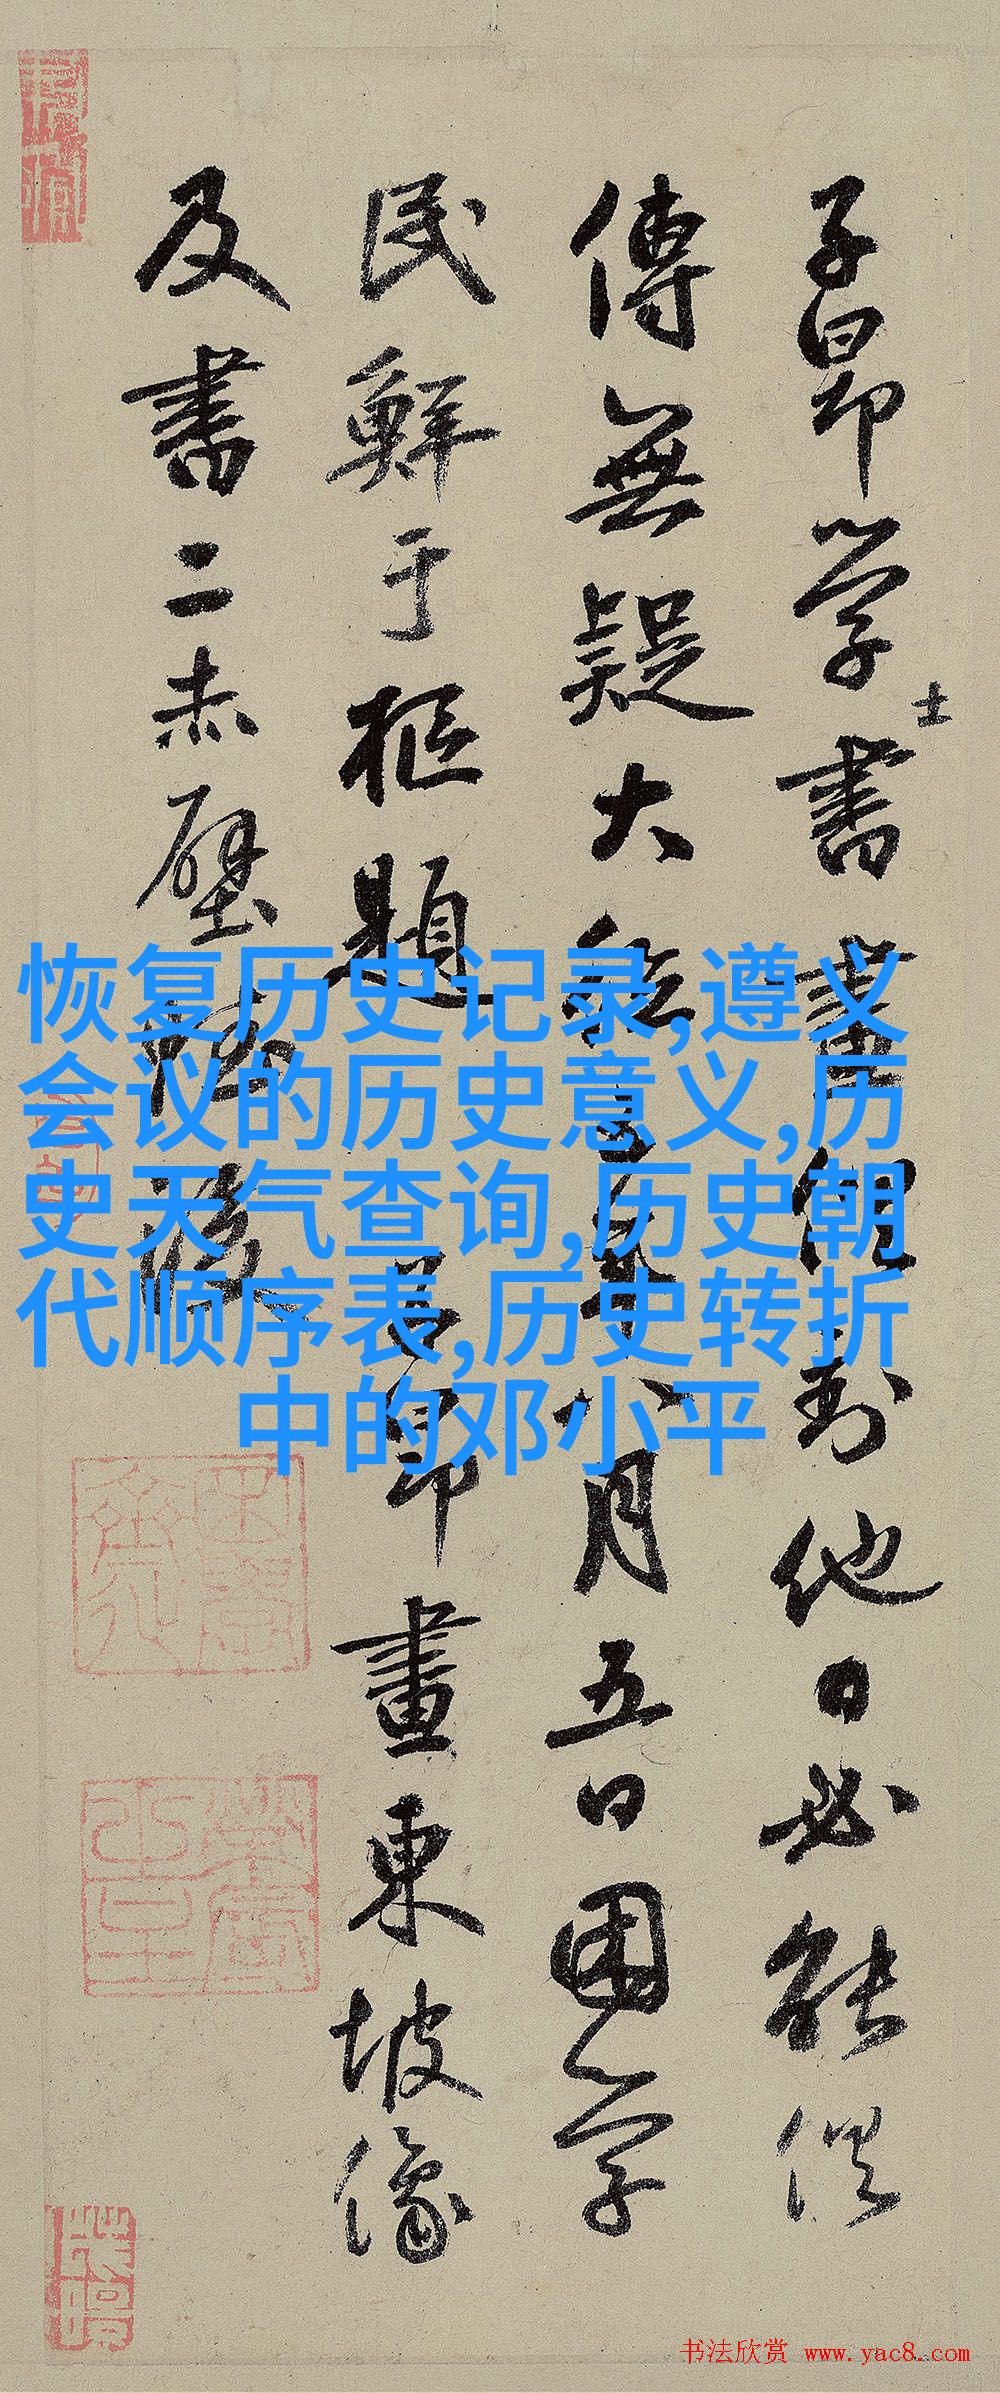 子昂学士書畫俱到他日必能俱
傳無疑大八月五日困学
民鮮于枢題昂畫東坡像
及書二赤壁
恢复历史记录,遵义
会议的历史意义,历
史天气查询,历史朝
代顺序表,历史转折
中的邓小平
书法欣赏 www.yac8.com